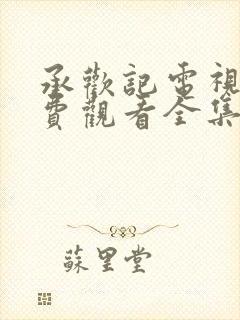 承歡記電視
費觀看全集
蘇里堂